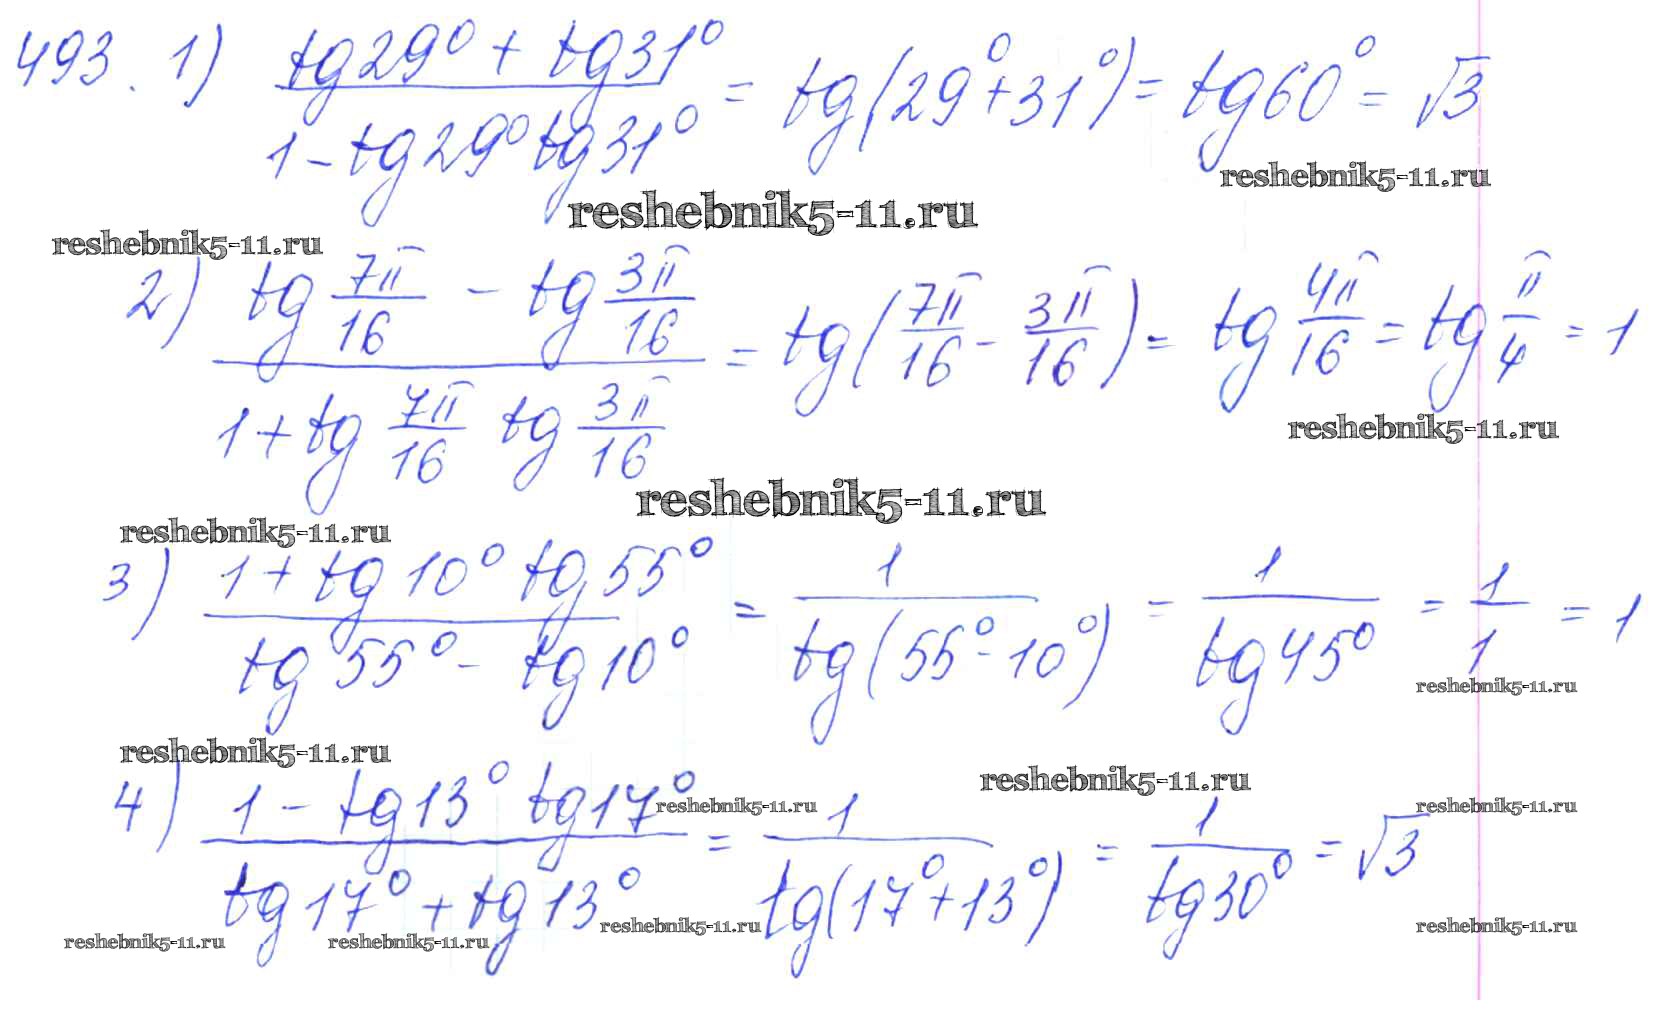 493. 1) (tg29° + tg31°)/(1 - tg29° tg31°) = tg(29° + 31°) = tg60° = √3
reshebnik5-11.ru
reshebnik5-11.ru
reshebnik5-11.ru
2) (tg 7π/16 - tg 3π/16)/(1 + tg 7π/16 tg 3π/16) = tg(7π/16 - 3π/16) = tg 4π/16 = tg π/4 = 1
reshebnik5-11.ru
reshebnik5-11.ru
reshebnik5-11.ru
3) (1 + tg10° tg55°)/(tg55° - tg10°) = 1/(tg(55° - 10°)) = 1/(tg45°) = 1/1 = 1
reshebnik5-11.ru
reshebnik5-11.ru
reshebnik5-11.ru
4) (1 - tg13° tg17°)/(tg17° + tg13°) = 1/(tg(17° + 13°)) = 1/(tg30°) = √3
reshebnik5-11.ru
reshebnik5-11.ru
reshebnik5-11.ru
reshebnik5-11.ru
reshebnik5-11.ru
reshebnik5-11.ru